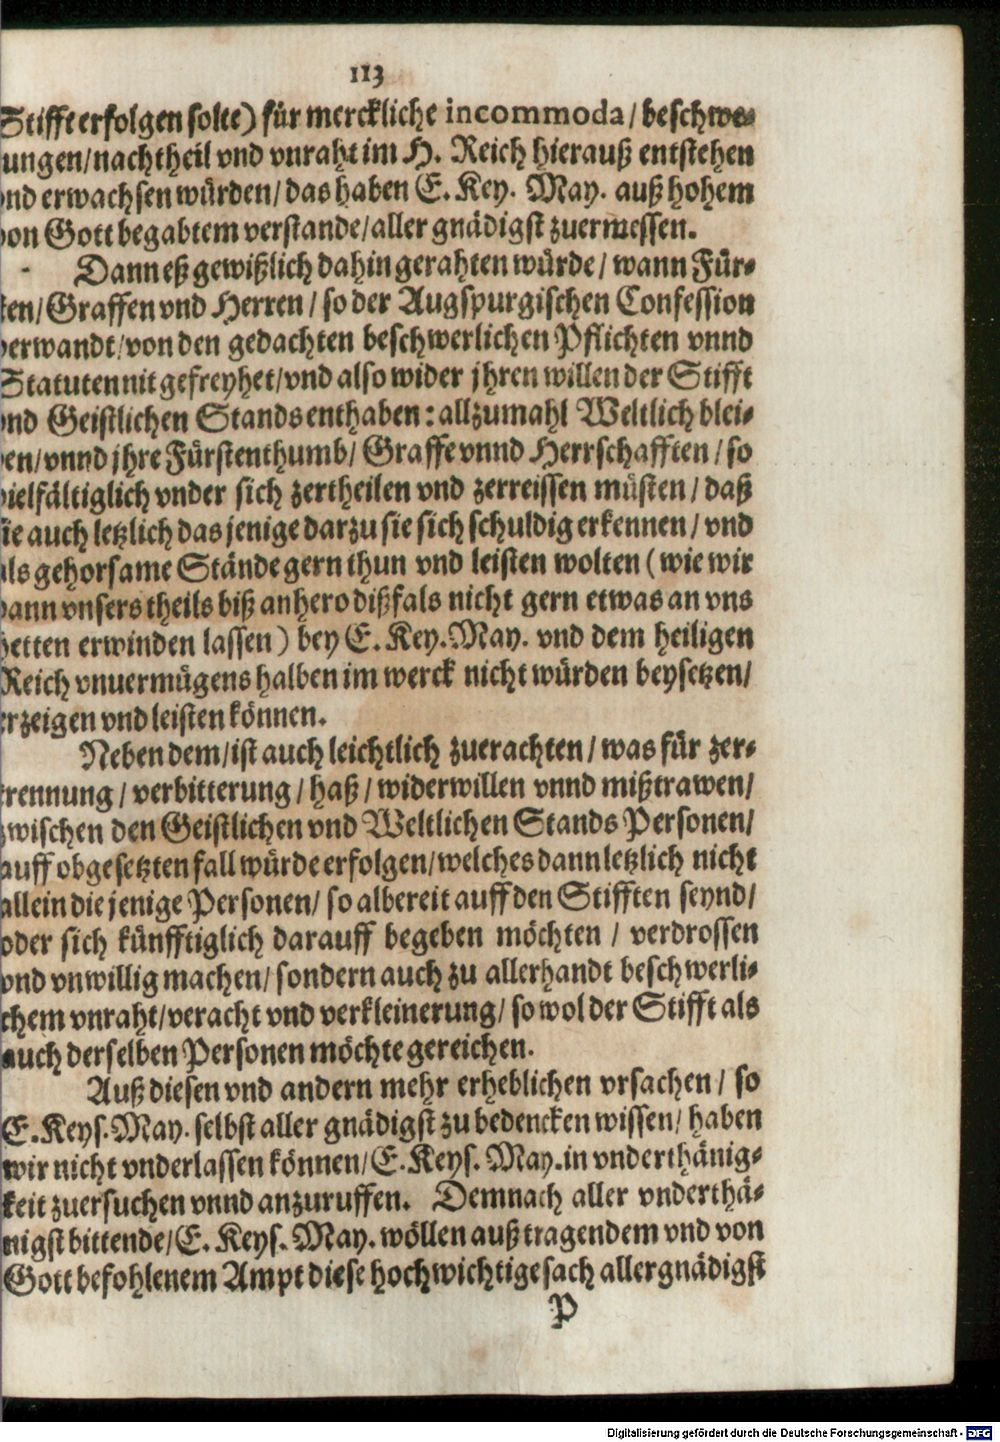 113
Stifft erfolgen solte) für merckliche incommoda / beschwe-
ungen / nachtheil vnd vnraht im H. Reich hierauß entstehen
nd erwachsen würden / das haben E. Key. May. auß hohem
von Gott begabtem verstande / aller gnädigst zuermessen.
Dann eß gewißlich dahin gerahten würde / wann Für-
ten / Graffen vnd Herren / so der Augspurgischen Confession
verwandt / von den gedachten beschwerlichen Pflichten vnnd
Statuten nit gefreyhet / vnd also wider jhren willen der Stifft
nd Geistlichen Stands enthaben: allzumahl Weltlich blei-
en / vnnd jhre Fürstenthumb / Graffe vnnd Herrschafften / so
vielfältiglich vnder sich zertheilen vnd zerreissen müsten / daß
ie auch letzlich das jenige darzu sie sich schuldig erkennen / vnd
als gehorsame Stände gern thun vnd leisten wolten (wie wir
dann vnsers theils biß anhero dißfals nicht gern etwas an vns
hetten erwinden lassen) bey E. Key. May. vnd dem heiligen
Reich vnuermügens halben im werck nicht würden beysetzen /
erzeigen vnd leisten können.
Neben dem / ist auch leichtlich zuerachten / was für zer-
trennung / verbitterung / haß / widerwillen vnnd mißtrawen /
zwischen den Geistlichen vnd Weltlichen Stands Personen /
auff obgesetzten fall würde erfolgen / welches dann letzlich nicht
allein die jenige Personen / so albereit auff den Stifften seynd /
oder sich künfftiglich darauff begeben möchten / verdrossen
vnd vnwillig machen / sondern auch zu allerhandt beschwerli-
chem vnraht / veracht vnd verkleinerung / so wol der Stifft als
auch derselben Personen möchte gereichen.
Auß diesen vnd andern mehr erheblichen vrsachen / so
E. Keys. May. selbst aller gnädigst zu bedencken wissen / haben
wir nicht vnderlassen können / E. Keys. May. in vnderthänig-
keit zuersuchen vnnd anzuruffen. Demnach aller vnderthä-
nigst bittende / E. Keys. May. wöllen auß tragendem vnd von
Gott befohlenem Ampt diese hochwichtige sach allergnädigst
P
Digitalisierung gefördert durch die Deutsche Forschungsgemeinschaft - DFG